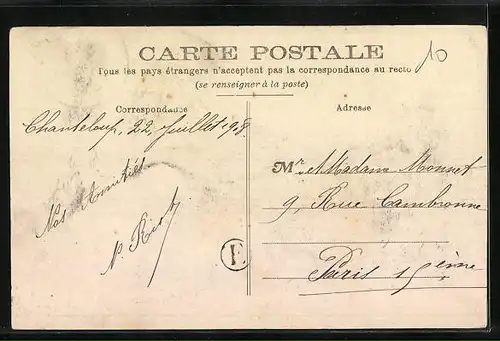 CARTE POSTALE
10
Tous les pays étrangers n'acceptent pas la correspondance au recto
(se renseigner à la poste)
Correspondance
Adresse
Chanteloup, 22 Juillet 1908
Nos Amitiés
Mr et Madame Monnet
9, Rue Cambronne
Paris 15ème
E